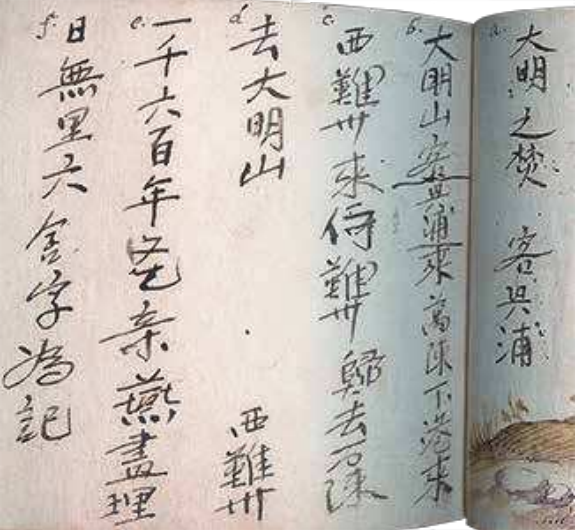 a. 大明之焚 客 浦
b. 大明山 浦來 萬陳下港來
c. 西難卅來 難卅歸去
d. 去大明山 西難卅
e. 一千六百年 亲燕盡理
f. 日無里六 字為記